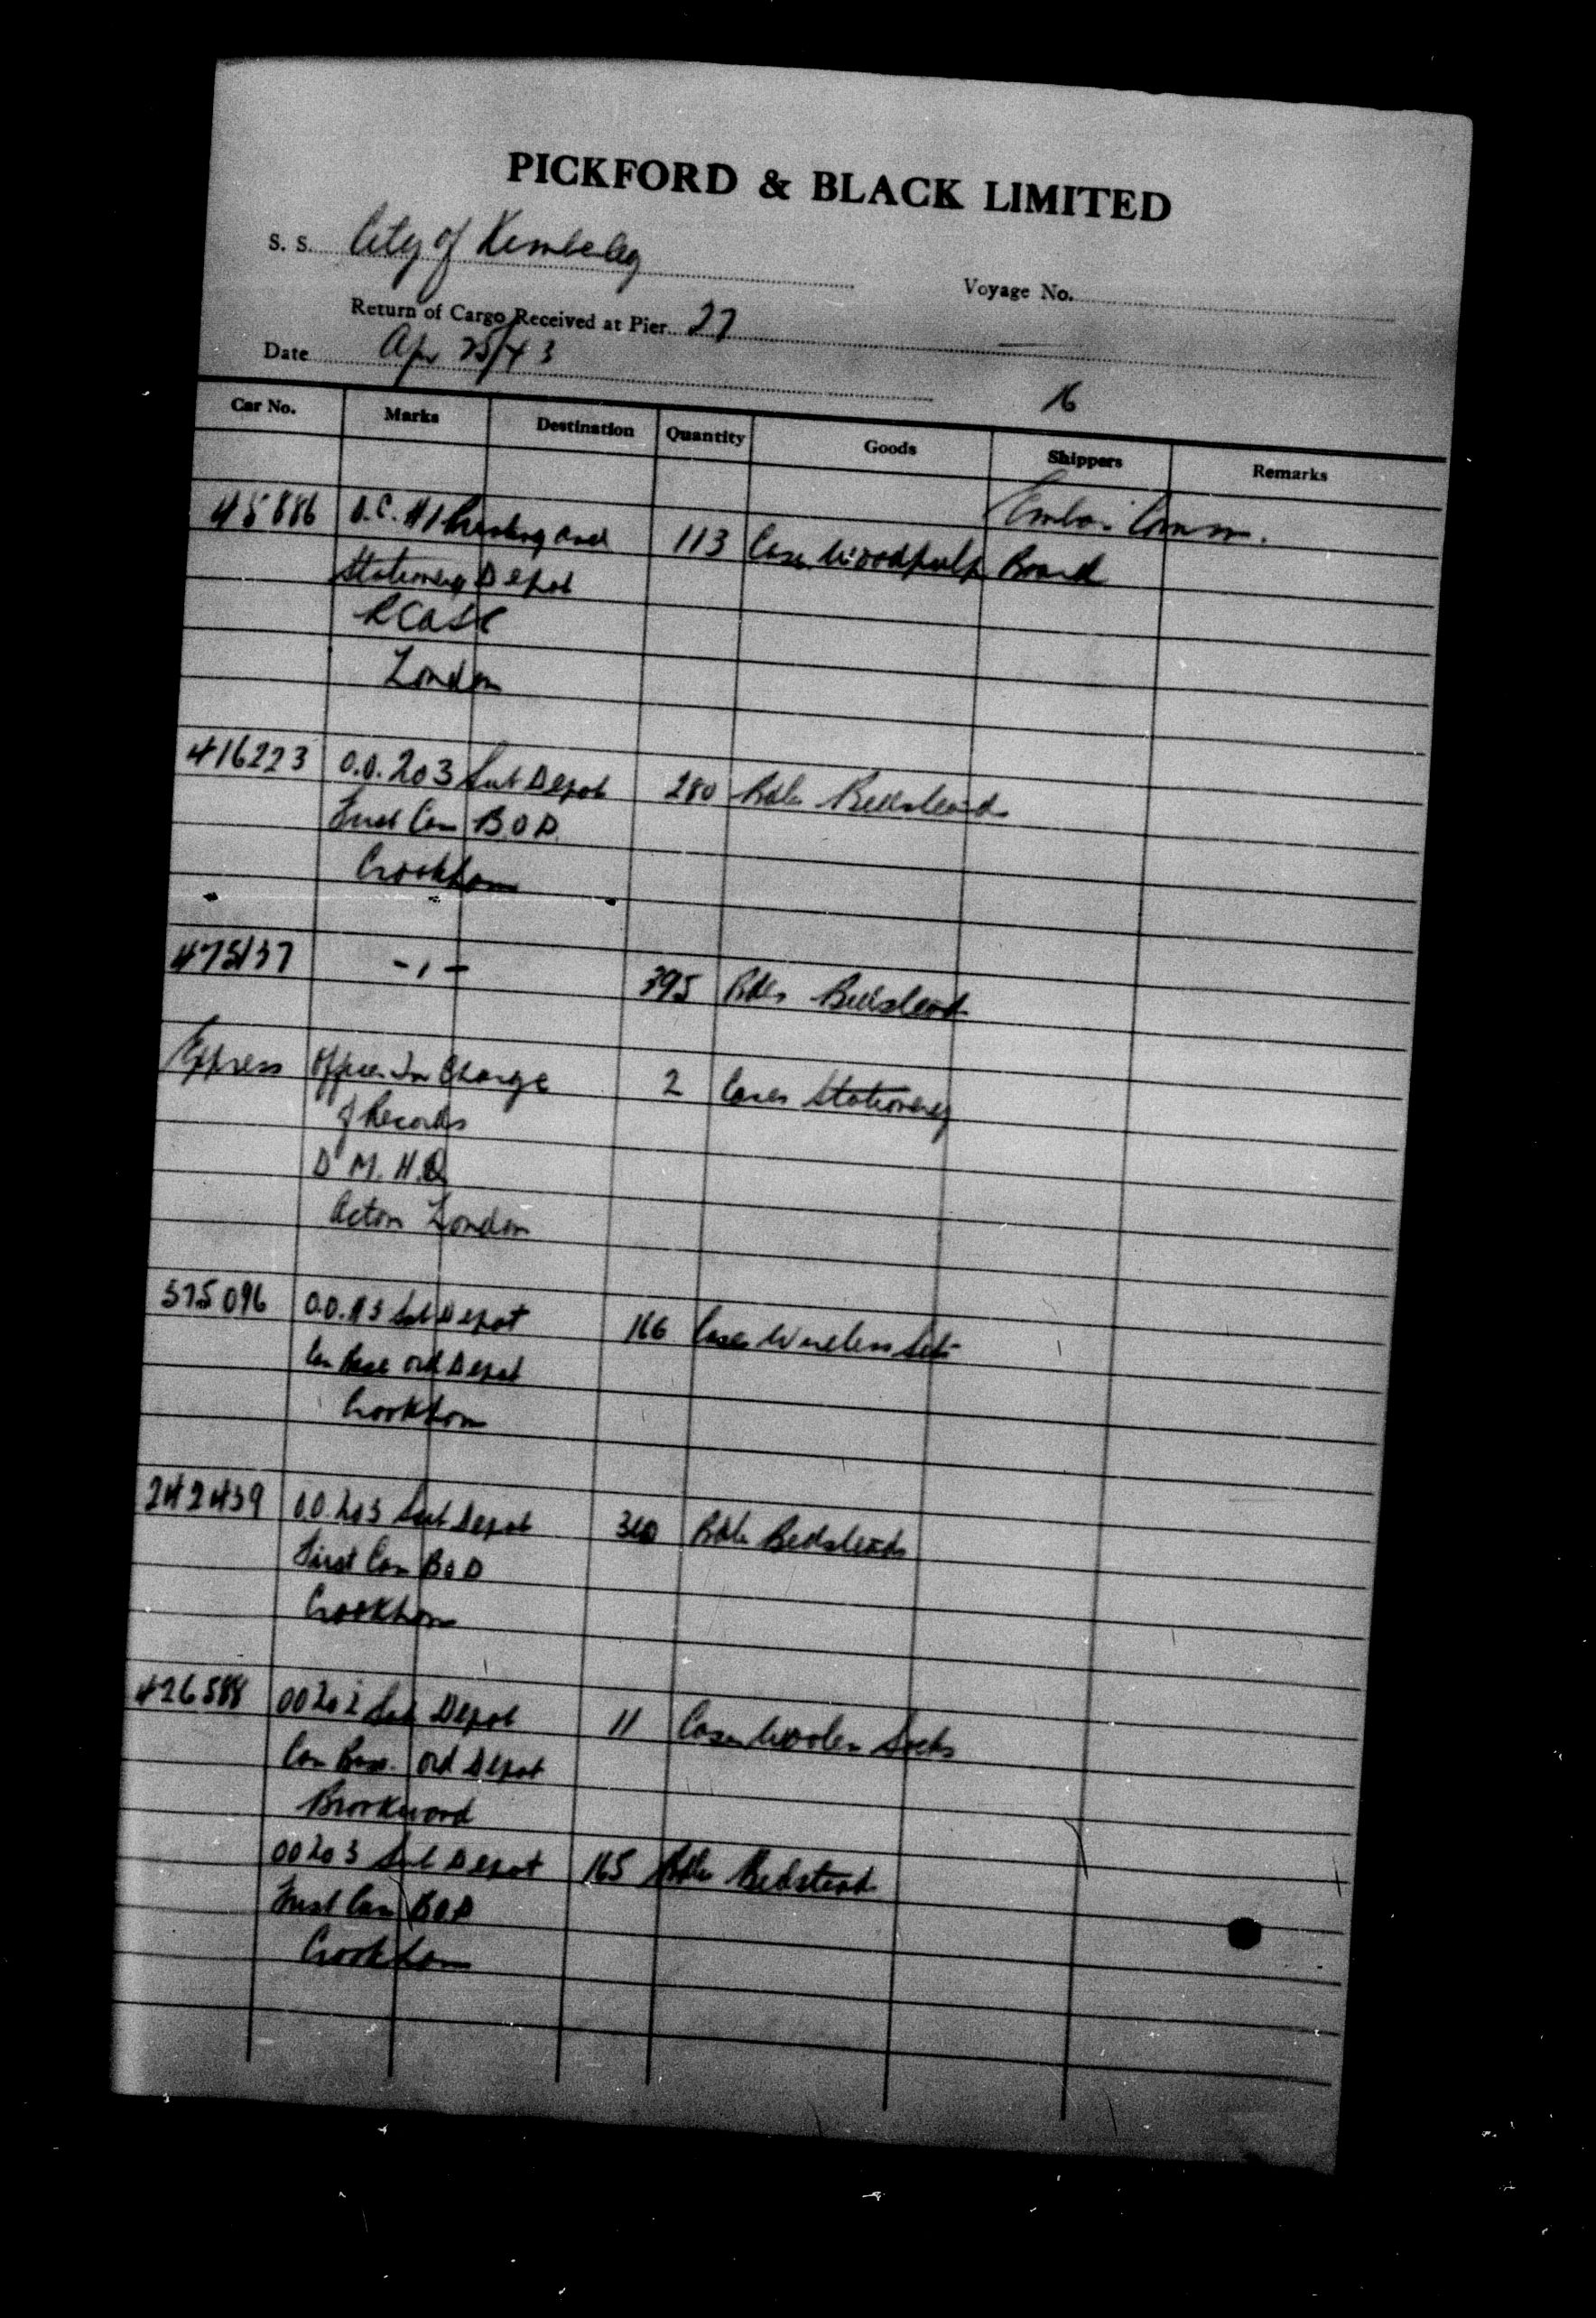 PICKFORD & BLACK LIMITED
S. S. City of Kimberley
Voyage No.
Return of Cargo Received at Pier 27
Date Apr 25/43
16
Car No. Marks Destination Quantity Goods Shippers Remarks
Embar Comm.
45886 O.C. #1 Printing and 113 Cases Woodpulp Board
Stationery Depot
RCASC
London
416223 O.O. 203 Sub Depot 280 Bdls Bedsteads
First Can B.O.D.
Crookham
475137 - " - 395 Bdls Bedsteads
Express Officer In Charge 2 Cases Stationery
of Records
D M.H.Q
Acton London
575096 O.O. #3 Sub Depot 166 Cases Wireless Sets
Can Base Ord Depot
Crookham
242439 O.O. 203 Sub Depot Bdls Bedsteads
First Can BOD
Crookham
426588 OO 202 Sub Depot 11 Cases Woolen Socks
Can Base Ord Depot
Brookwood
OO 203 Sub Depot 165 Bdls Bedsteads
First Can BOD
Crookham